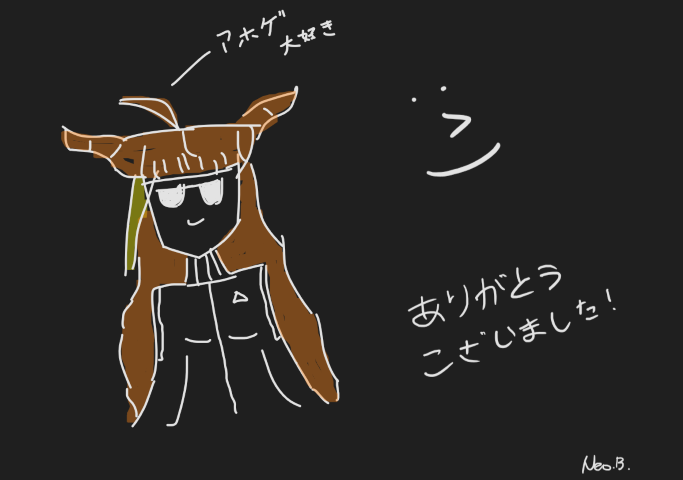 アホゲ
大好き
ありがとう
ございました!
Neo.B.